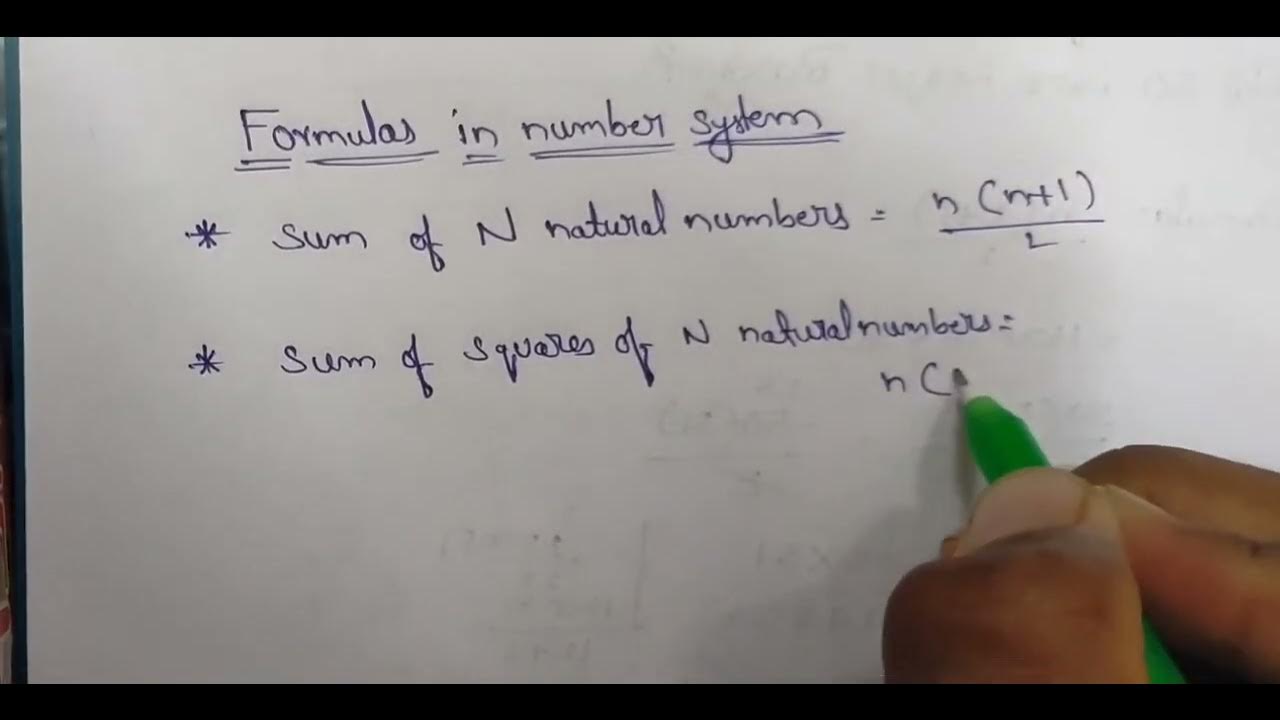 Formulas in number system
* Sum of N natural numbers = n (n+1)
2
* Sum of squares of N natural numbers =
n (